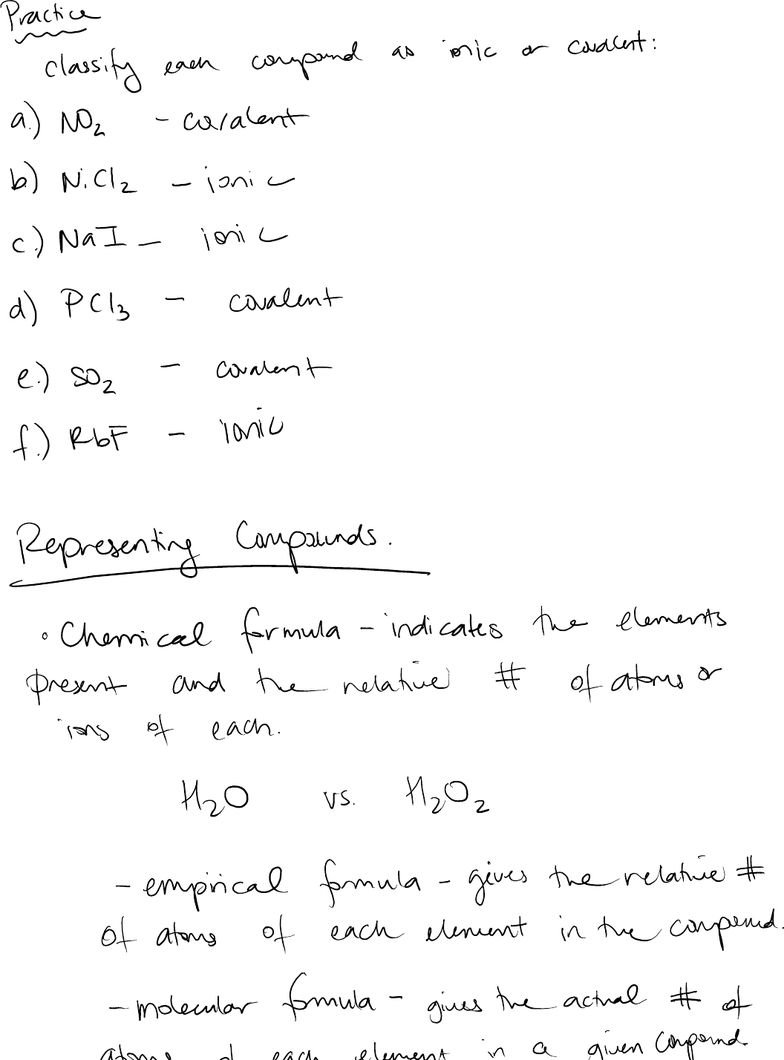 Practice
Classify each compound as ionic or covalent:
a.) NO₂ - covalent
b) NiCl₂ - ionic
c.) NaI - ionic
d) PCl₃ - covalent
e.) SO₂ - covalent
f.) RbF - ionic
Representing Compounds.
• Chemical formula - indicates the elements
present and the relative # of atoms or
ions of each.
H₂O vs. H₂O₂
- empirical formula - gives the relative #
of atoms of each element in the compound.
- molecular formula - gives the actual # of
atoms of each element in a given compound